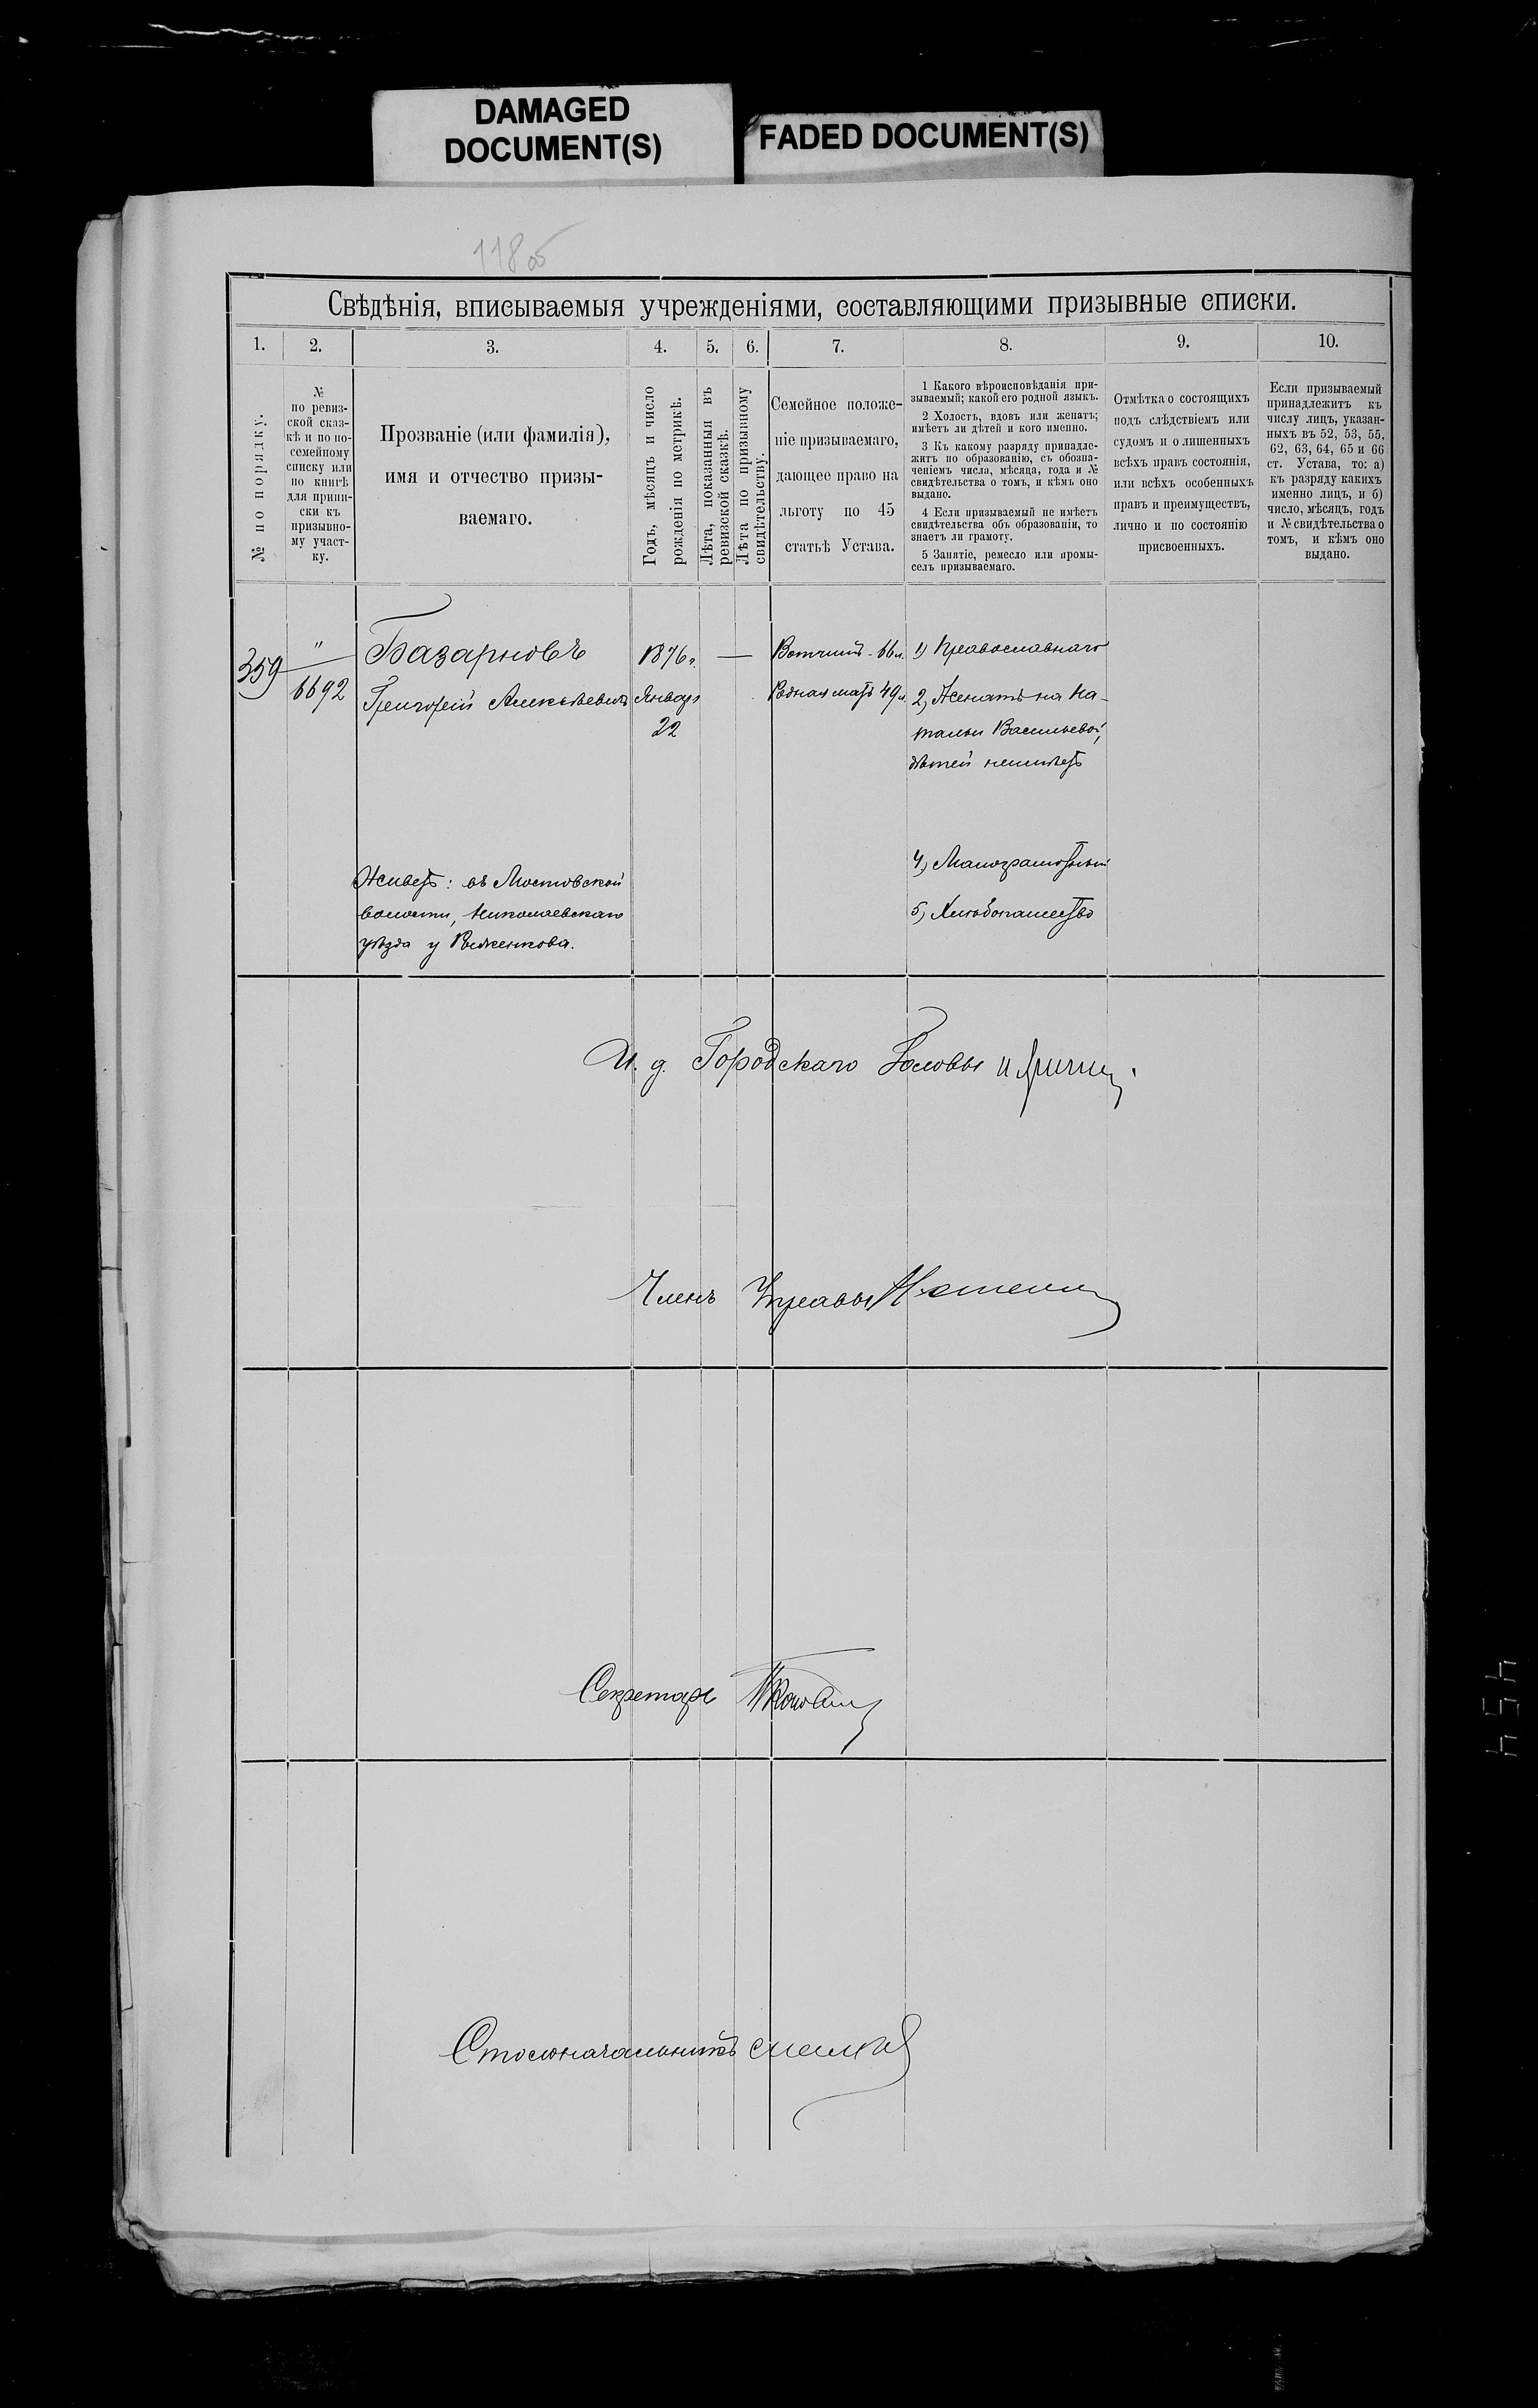 DAMAGED
DOCUMENT(S)
FADED DOCUMENT(S)
Свѣдѣнія, вписываемыя учрежденіями, составляющими призывные списки.
1.
2.
3.
4.
5.
6.
7.
8.
9.
10.
№ по порядку.
№
по ревиз-
ской сказ-
кѣ и по по-
семейному
списку или
по книгѣ
для припи-
ски къ
призывно-
му участ-
ку.
Прозваніе (или фамилія),
имя и отчество призы-
ваемаго.
Годъ, мѣсяцъ и число
рожденія по метрикѣ.
Лѣта, показанныя въ
ревизской сказкѣ.
Лѣта по призывному
свидѣтельству.
Семейное положе-
ніе призываемаго,
дающее право на
льготу по 45
статьѣ Устава.
1 Какого вѣроисповѣданія при-
зываемый; какой его родной языкъ.
2 Холостъ, вдовъ или женатъ;
имѣетъ ли дѣтей и кого именно.
3 Къ какому разряду принадле-
житъ по образованію, съ обозна-
ченіемъ числа, мѣсяца, года и №
свидѣтельства о томъ, и кѣмъ оно
выдано.
4 Если призываемый не имѣетъ
свидѣтельства объ образованіи, то
знаетъ ли грамоту.
5 Занятіе, ремесло или промы-
селъ призываемаго.
Отмѣтка о состоящихъ
подъ слѣдствіемъ или
судомъ и о лишенныхъ
всѣхъ правъ состоянія,
или всѣхъ особенныхъ
правъ и преимуществъ,
лично и по состоянію
присвоенныхъ.
Если призываемый
принадлежитъ къ
числу лицъ, указан-
ныхъ въ 52, 53, 55,
62, 63, 64, 65 и 66
ст. Устава, то: а)
къ разряду какихъ
именно лицъ, и б)
число, мѣсяцъ, годъ
и № свидѣтельства о
томъ, и кѣмъ оно
выдано.
359
"
6692
Базарновъ
Григорій Алексѣевичъ
Живетъ: въ Мостовской
волости, Николаевскаго
уѣзда у
1876 г.
Января
22
—
Вотчимъ - 66 л.
Родная мать 49 л.
1) Православнаго
2) Женатъ на На-
тальи Васильевой,
дѣтей неимѣетъ
4) Малограмотный
5) Хлѣбопашество
И. д. Городскаго Головы
Членъ Управы
Секретарь
Столоначальникъ
454